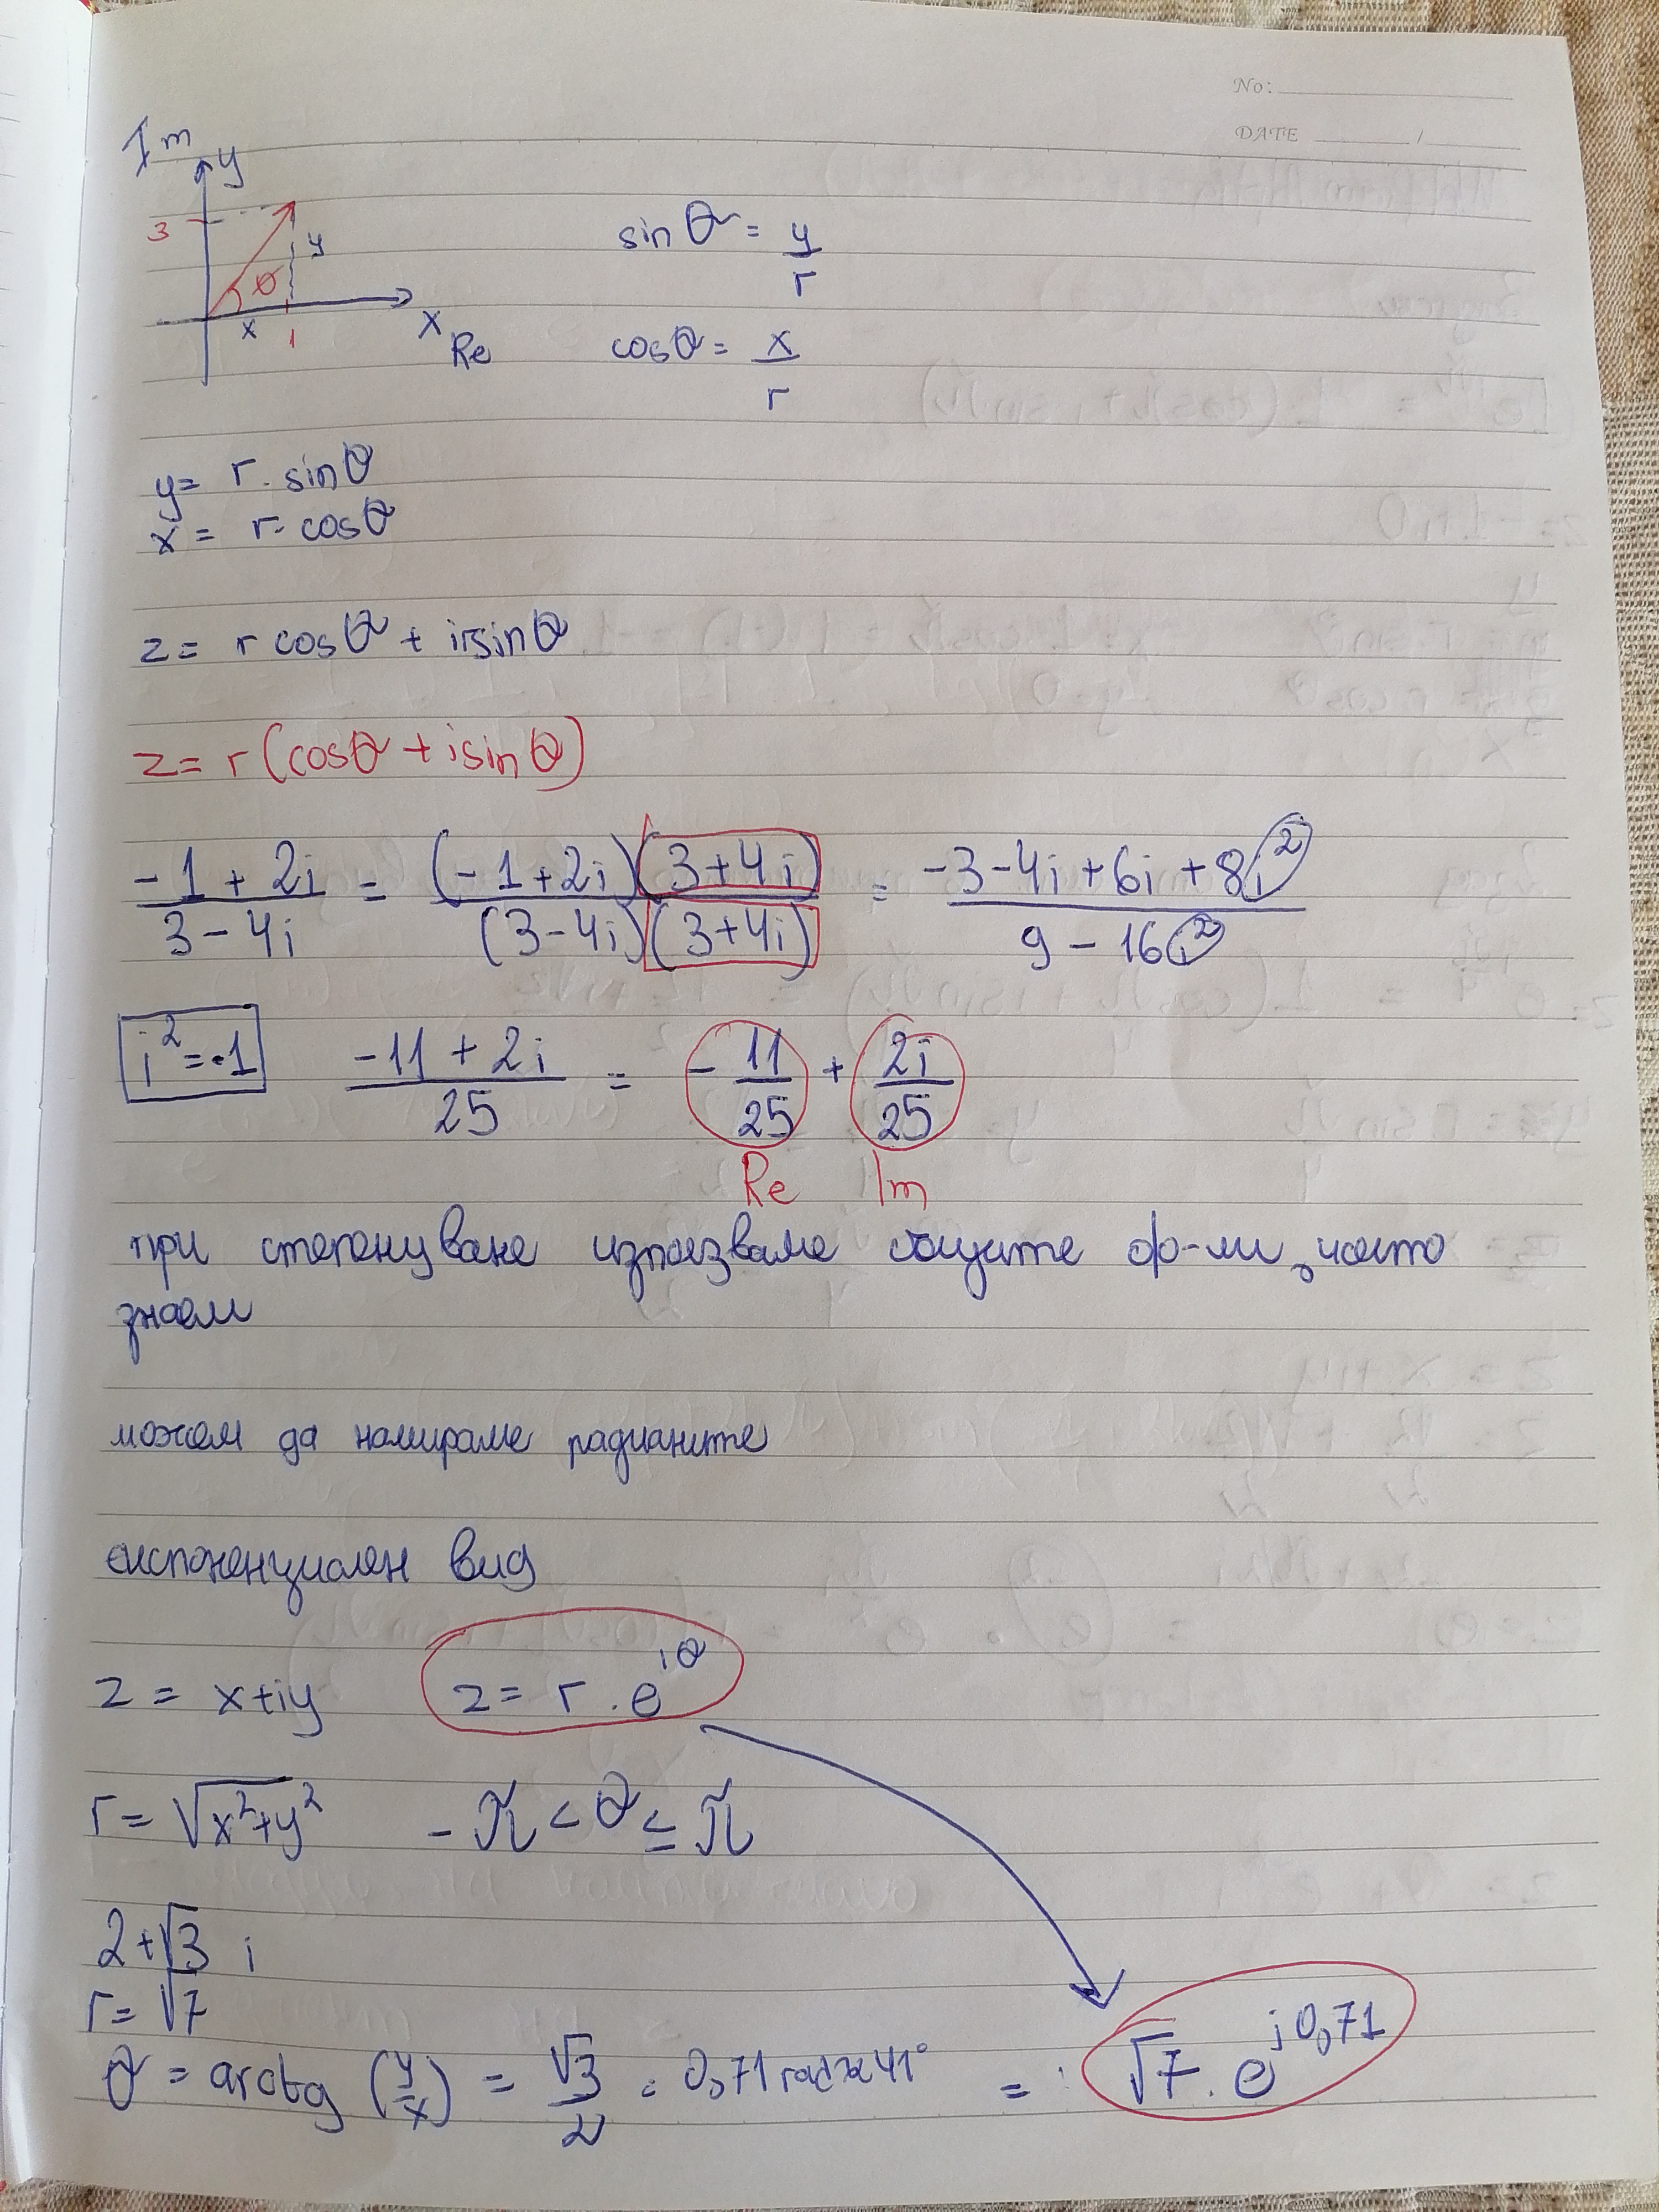 No:
DATE /
Im
y
3
y
θ
x
1
x
Re
sin θ = y/r
cos θ = x/r
y = r . sin θ
x = r . cos θ
z = r cos θ + i r sin θ
z = r (cos θ + i sin θ)
(-1 + 2i)/(3 - 4i) = (-1 + 2i)(3 + 4i)/(3 - 4i)(3 + 4i) = (-3 - 4i + 6i + 8i²)/(9 - 16i²)
i² = -1 (-11 + 2i)/25 = -11/25 + 2i/25
Re Im
при степенуване използваме общите ф-ли, които
знаем
можем да намираме радианите
експоненциален вид
z = x + iy z = r . e^(iθ)
r = √(x² + y²) - π < θ ≤ π
2 + √3 i
r = √7
θ = arctg (y/x) = √3/2 = 0,71 rad ≈ 41° = √7 . e^(i 0,71)